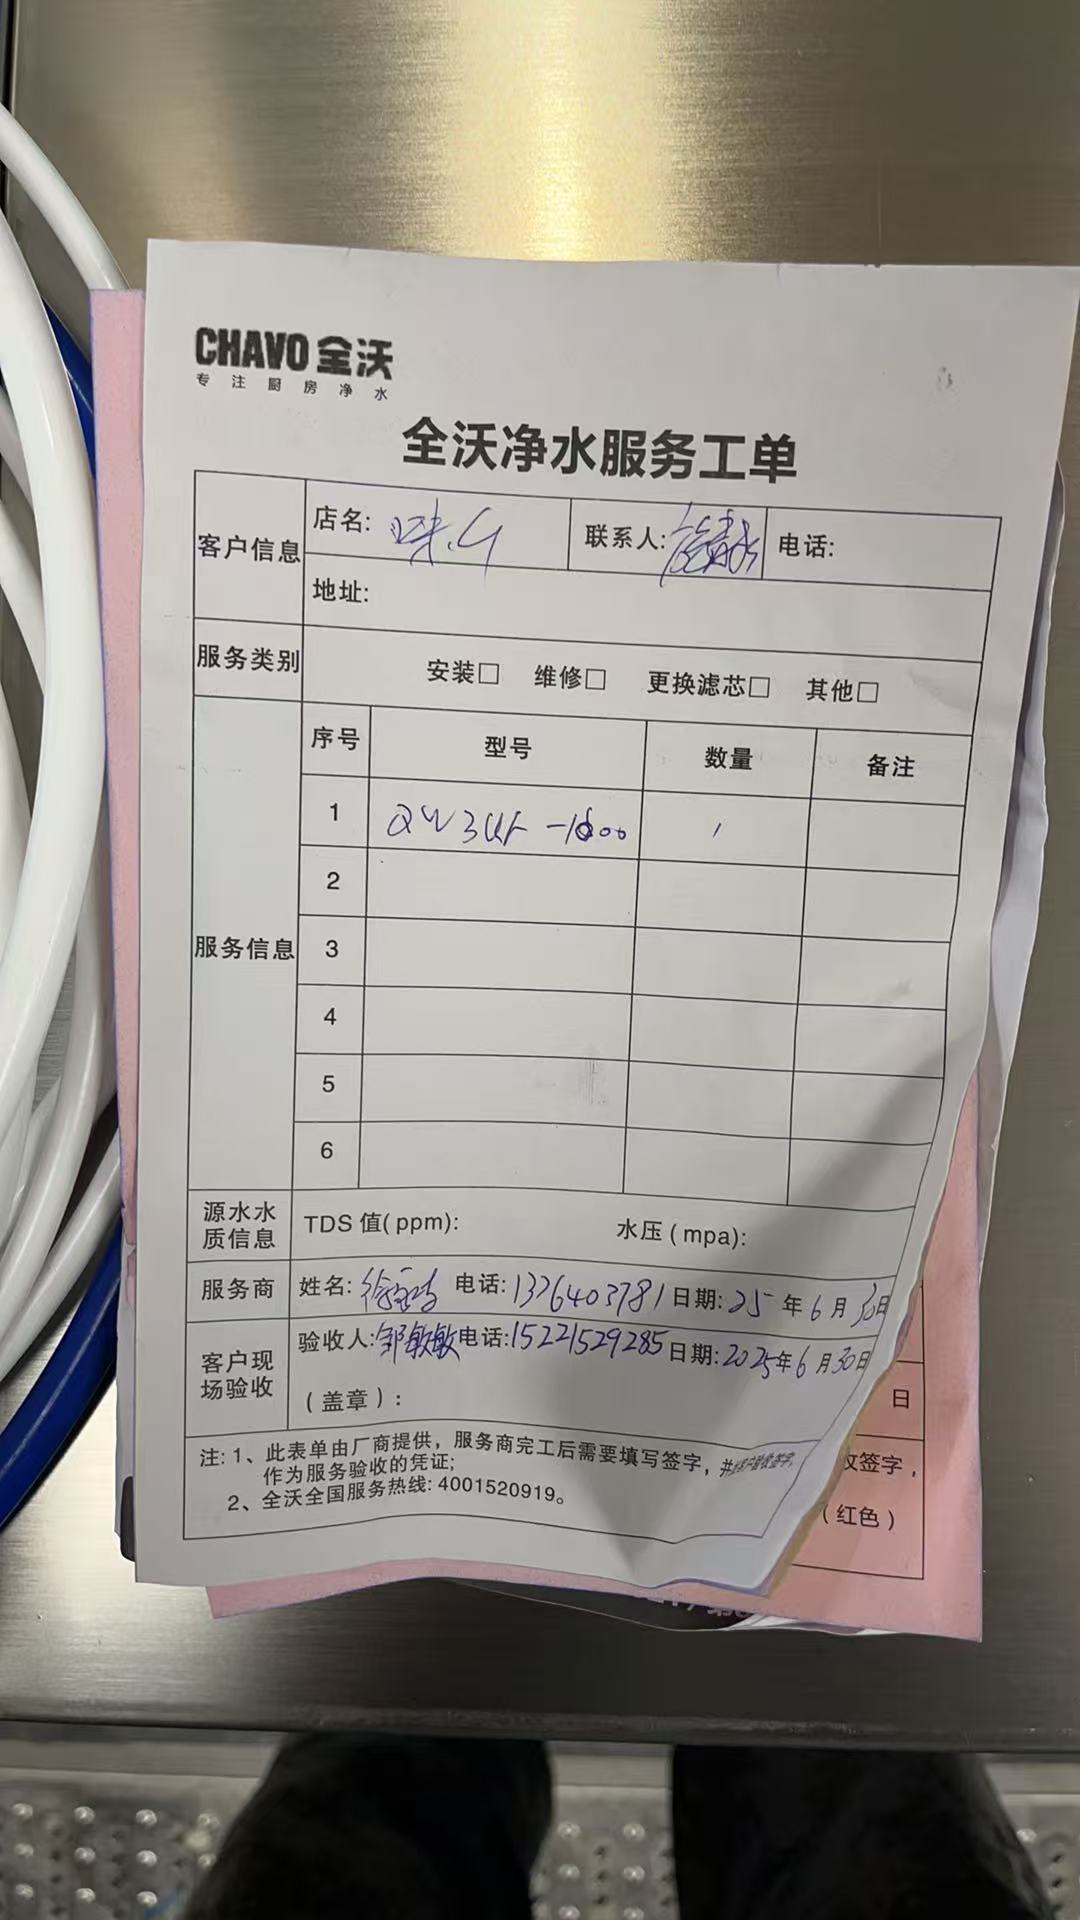 CHAVO 全沃
专注厨房净水
全沃净水服务工单
客户信息
店名: 味
联系人:
电话:
地址:
服务类别
安装□ 维修□ 更换滤芯□ 其他□
服务信息
序号 型号 数量 备注
1 QW3UF-1000 1
2
3
4
5
6
源水水质信息
TDS 值(ppm): 水压(mpa):
服务商
姓名: 徐 电话:13764037811 日期:25年6月30日
客户现场验收
验收人:邹敏敏 电话:15221529285 日期:2025年6月30日
(盖章):
注: 1、此表单由厂商提供，服务商完工后需要填写签字，并
作为服务验收的凭证;
2、全沃全国服务热线: 4001520919。
日
收签字，
(红色)